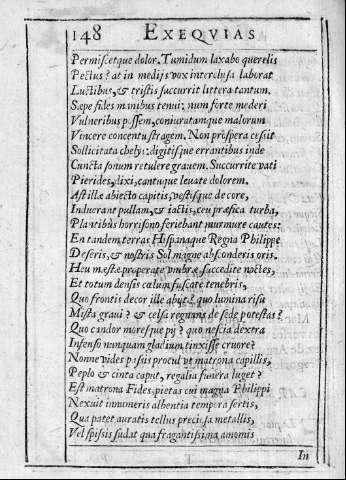 148 EXEQVIAS
Permiscetque dolor. Tumidum laxabo querelis
Pectus? at in medijs vox interclusa laborat
Luctibus, & tristis succurrit littera tantum.
Sæpe fides manibus tenui: num forte mederi
Vulneribus possem, coniuratamque malorum
Vincere concentu stragem. Non prospera cessit
Sollicitata chelys: digitisque errantibus inde
Cuncta sonum retulere grauem. Succurrite vati
Pierides, dixi, cantuque leuate dolorem.
Ast illæ abiecto capitis, vestisque decore,
Induerant pullam, & iactis, ceu præfica turba,
Planctibus horrisono feriebant murmure cautes:
En tandem terras Hispanaque Regna Philippe
Deseris, & nostris Sol magne absconderis oris.
Heu mæstæ properate vmbræ succedite noctes,
Et totum densis cœlum fuscate tenebris,
Quo frontis decor ille abijt? quo lumina risu
Mista graui? & celsa regnans de sede potestas?
Quo candor moresque pij? quo nescia dextra
Infenso nunquam gladium tinxisse cruore?
Nonne vides passis procul vt matrona capillis,
Peplo & cincta caput, regalia funera luget?
Est matrona Fides, pietas cui magna Philippi
Nexuit innumeris albentia tempora sertis,
Qua patet auratis tellus preciosa metallis,
Vel spissis sudat qua fragantissima amomis
In